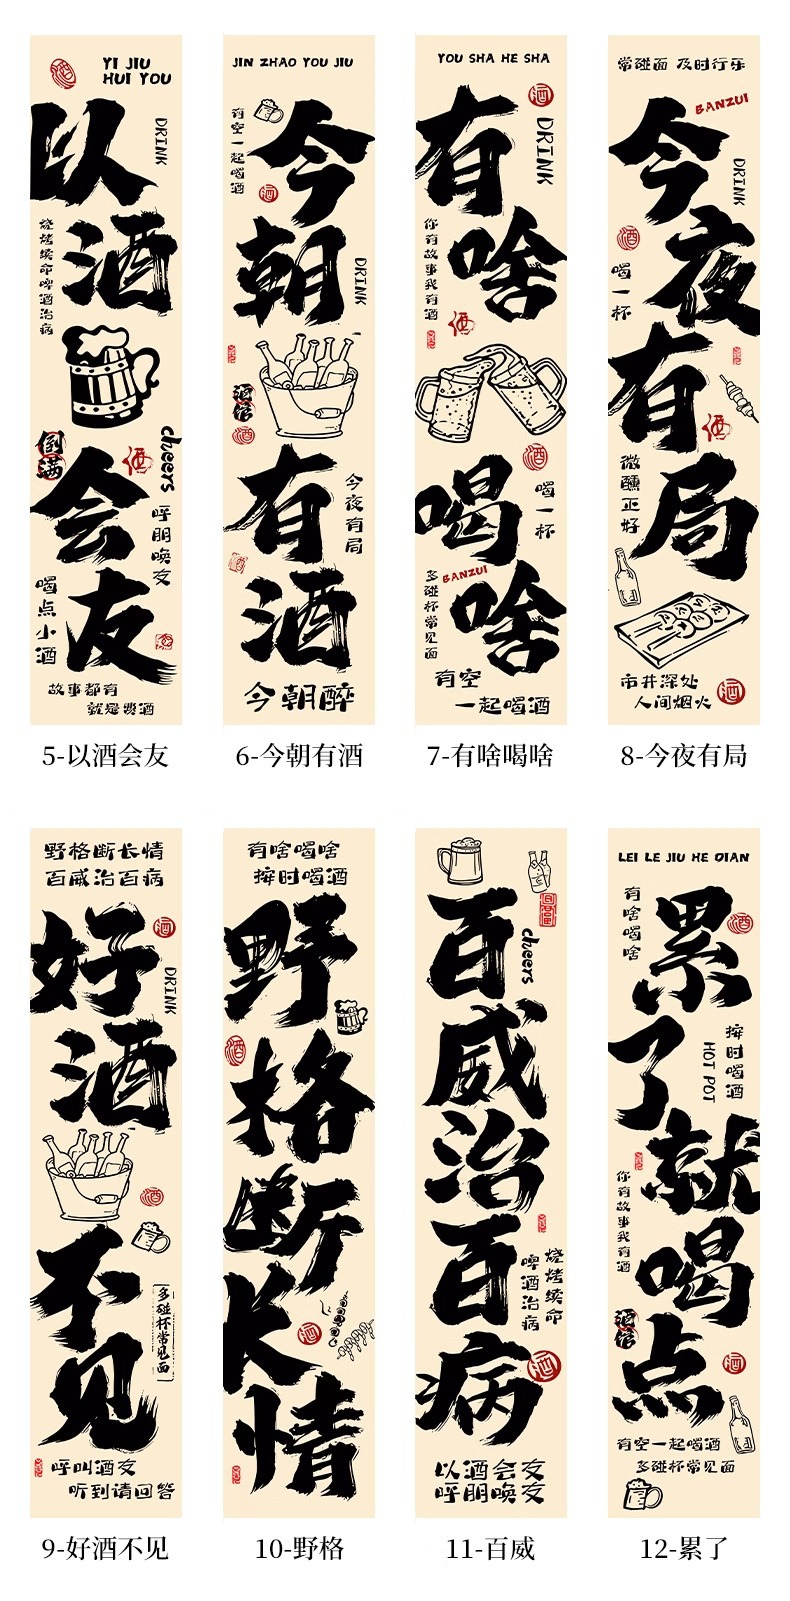 YI JIU
HUI YOU
酒
以酒会友
DRINK
烧烤续命啤酒治病
倒满
酒
cheers
呼朋唤友
喝点小酒
故事都有
就是费酒
5-以酒会友
JIN ZHAO YOU JIU
有空一起喝酒
酒
今朝有酒
DRINK
酒馆
酒
今夜有局
今朝醉
6-今朝有酒
YOU SHA HE SHA
酒
有啥喝啥
DRINK
你有故事我有酒
酒
酒
喝一杯
BANZUI
多碰杯常见面
有空
一起喝酒
7-有啥喝啥
常碰面 及时行乐
BANZUI
今夜有局
DRINK
酒
喝一杯
酒
微醺正好
市井深处
人间烟火
酒
8-今夜有局
野格断长情
百威治百病
好酒不见
酒
DRINK
酒
多碰杯常见面
呼叫酒友
听到请回答
9-好酒不见
有啥喝啥
按时喝酒
野格断长情
酒
酒
10-野格
百威治百病
cheers
烧烤续命
啤酒治病
酒
以酒会友
呼朋唤友
11-百威
LEI LE JIU HE DIAN
有啥喝啥
酒
累了就喝点
按时喝酒
HOT POT
你有故事我有酒
酒馆
酒
有空一起喝酒
多碰杯常见面
12-累了